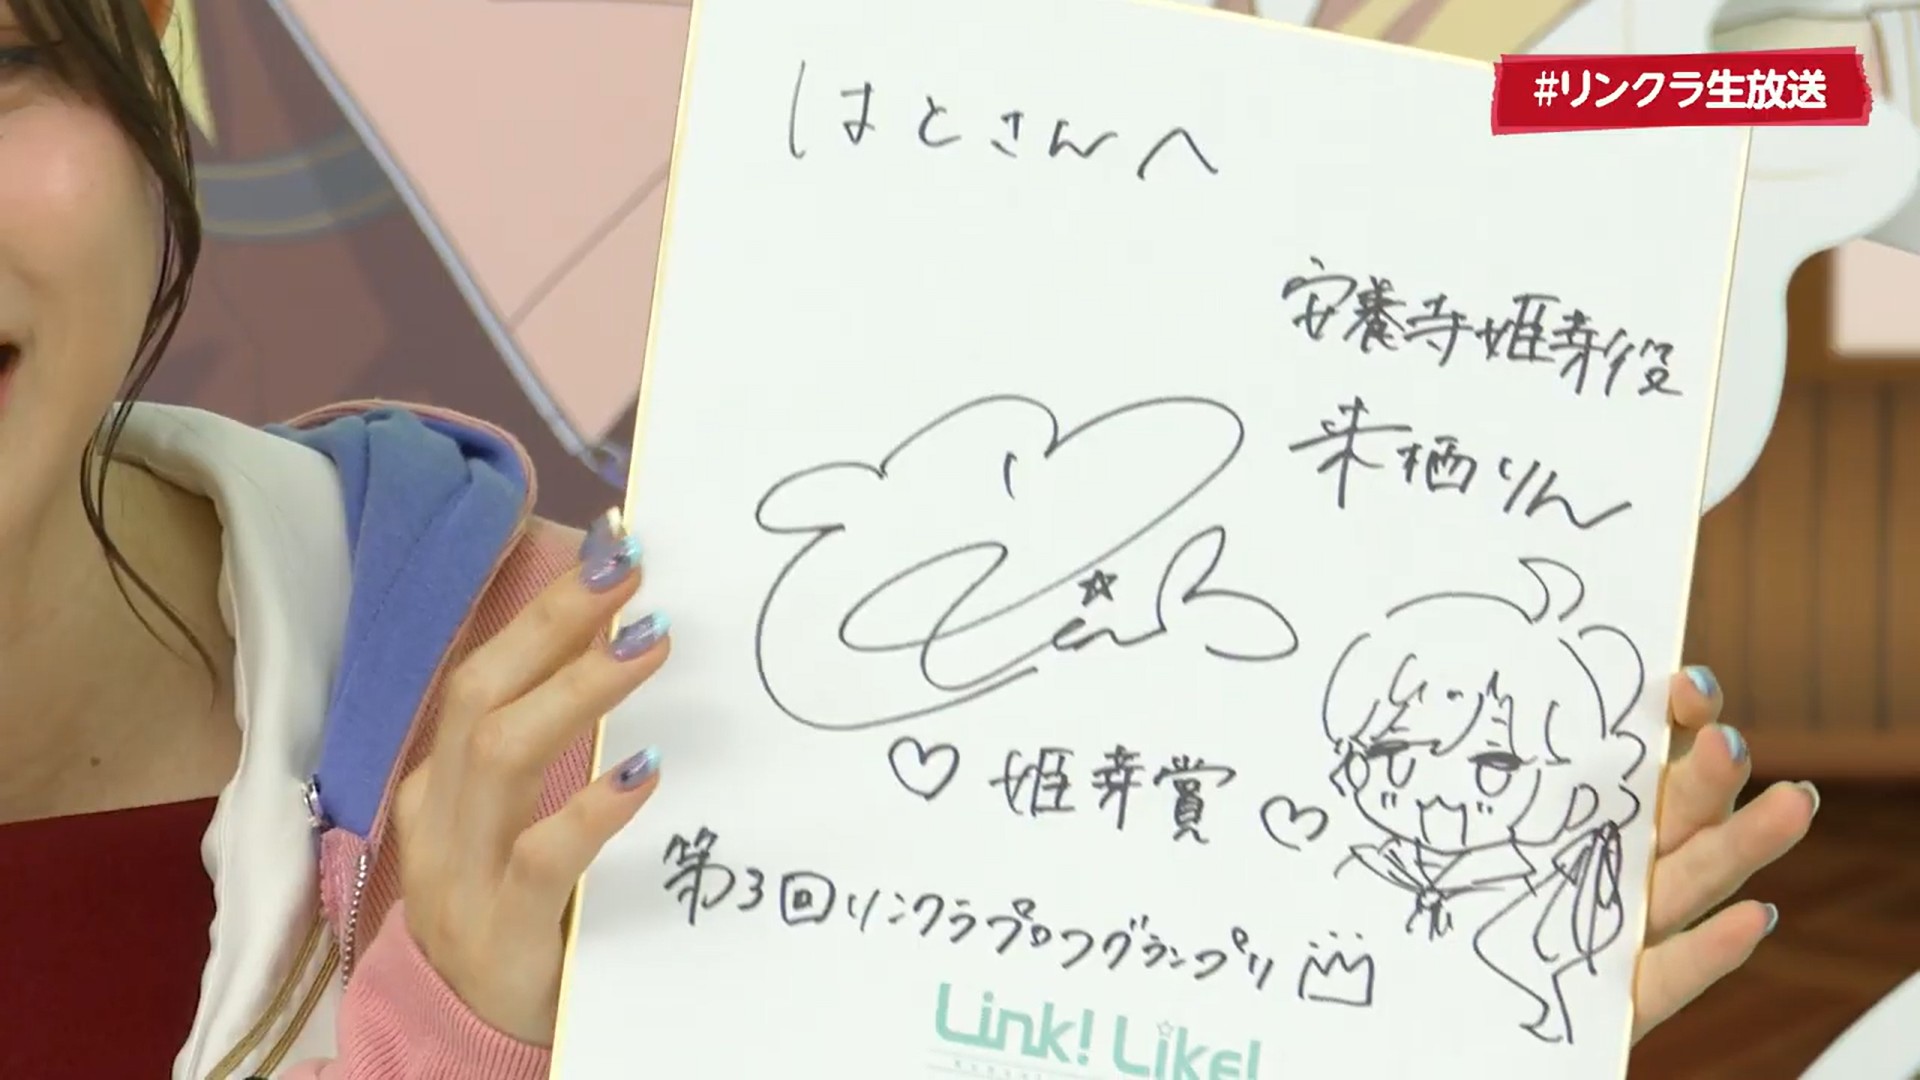 #リンクラ生放送
はとさんへ
安養寺姫芽役
来栖りん
♡姫芽賞♡
第3回リンクラプロフグランプリ
Link! Like!